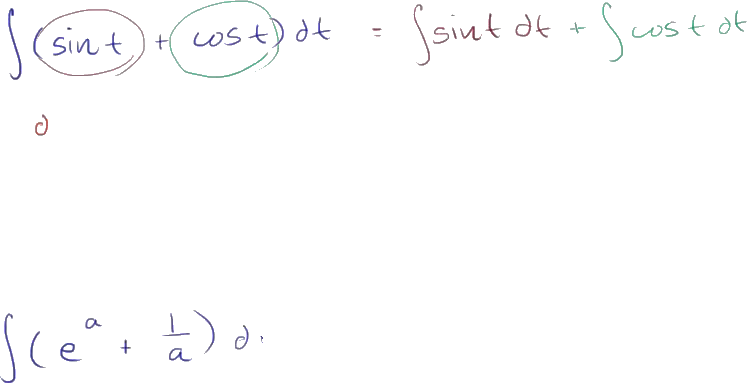 ∫(sin t + cos t) dt = ∫sin t dt + ∫cos t dt
d
∫(e^a + 1/a) d